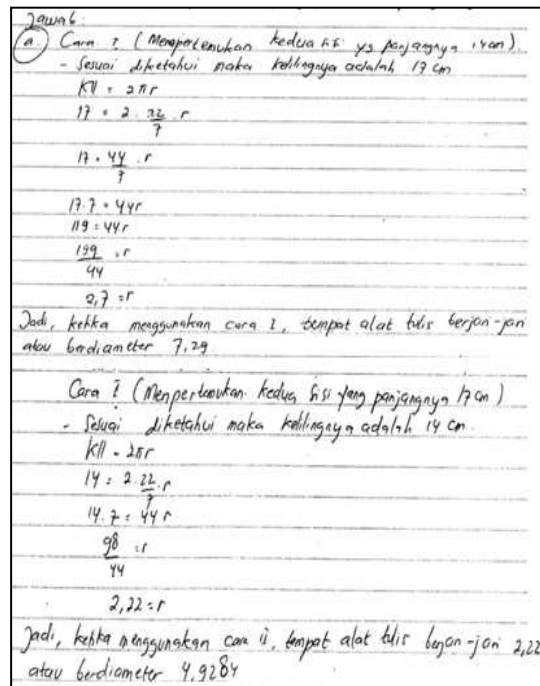 Jawab:
a. Cara I (Mempertemukan kedua sisi yg panjangnya 14 cm).
- Sesuai diketahui maka kelilingnya adalah 17 cm
Kll = 2πr
17 = 2 . 22/7 . r
17 = 44/7 . r
17.7 = 44r
119 = 44r
199/44 = r
2,7 = r
Jadi, ketika menggunakan cara I, tempat alat tulis berjari-jari
atau berdiameter 7,29
Cara I (Mempertemukan kedua sisi yang panjangnya 17 cm)
- Sesuai diketahui maka kelilingnya adalah 14 cm.
Kll = 2πr
14 = 2.22/7.r
14.7 = 44 r
98/44 = r
2,22 = r
Jadi, ketika menggunakan cara ii, tempat alat tulis berjari-jari 2,22
atau berdiameter 4,9284